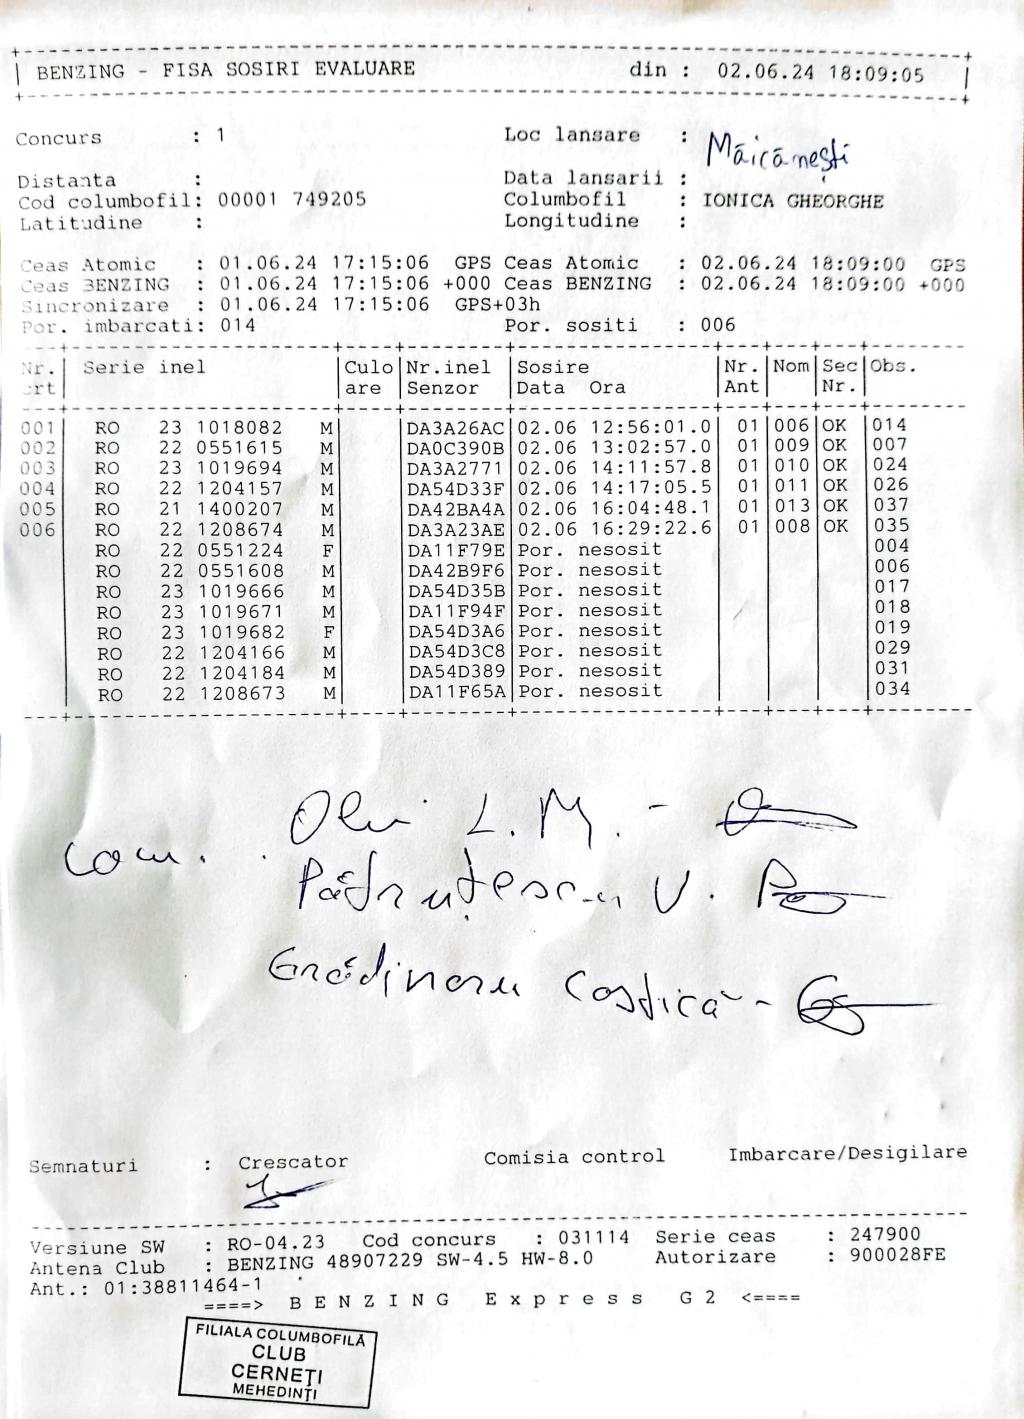 BENZING - FISA SOSIRI EVALUARE din : 02.06.24 18:09:05
Concurs : 1 Loc lansare : Măicănești
Distanta : Data lansarii :
Cod columbofil: 00001 749205 Columbofil : IONICA GHEORGHE
Latitudine : Longitudine :
Ceas Atomic : 01.06.24 17:15:06 GPS Ceas Atomic : 02.06.24 18:09:00 GPS
Ceas BENZING : 01.06.24 17:15:06 +000 Ceas BENZING : 02.06.24 18:09:00 +000
Sincronizare : 01.06.24 17:15:06 GPS+03h
Por. imbarcati: 014 Por. sositi : 006
Nr. Serie inel Culo Nr.inel Sosire Nr. Nom Sec Obs.
crt are Senzor Data Ora Ant Nr.
001 RO 23 1018082 M DA3A26AC 02.06 12:56:01.0 01 006 OK 014
002 RO 22 0551615 M DA0C390B 02.06 13:02:57.0 01 009 OK 007
003 RO 23 1019694 M DA3A2771 02.06 14:11:57.8 01 010 OK 024
004 RO 22 1204157 M DA54D33F 02.06 14:17:05.5 01 011 OK 026
005 RO 21 1400207 M DA42BA4A 02.06 16:04:48.1 01 013 OK 037
006 RO 22 1208674 M DA3A23AE 02.06 16:29:22.6 01 008 OK 035
RO 22 0551224 F DA11F79E Por. nesosit 004
RO 22 0551608 M DA42B9F6 Por. nesosit 006
RO 23 1019666 M DA54D35B Por. nesosit 017
RO 23 1019671 M DA11F94F Por. nesosit 018
RO 23 1019682 F DA54D3A6 Por. nesosit 019
RO 22 1204166 M DA54D3C8 Por. nesosit 029
RO 22 1204184 M DA54D389 Por. nesosit 031
RO 22 1208673 M DA11F65A Por. nesosit 034
L. M. -
Com.
Pătruțescu V.
Grădinaru Costică -
Semnaturi : Crescator Comisia control Imbarcare/Desigilare
Versiune SW : RO-04.23 Cod concurs : 031114 Serie ceas : 247900
Antena Club : BENZING 48907229 SW-4.5 HW-8.0 Autorizare : 900028FE
Ant.: 01:38811464-1
====> B E N Z I N G E x p r e s s G 2 <====
FILIALA COLUMBOFILĂ
CLUB
CERNEȚI
MEHEDINȚI